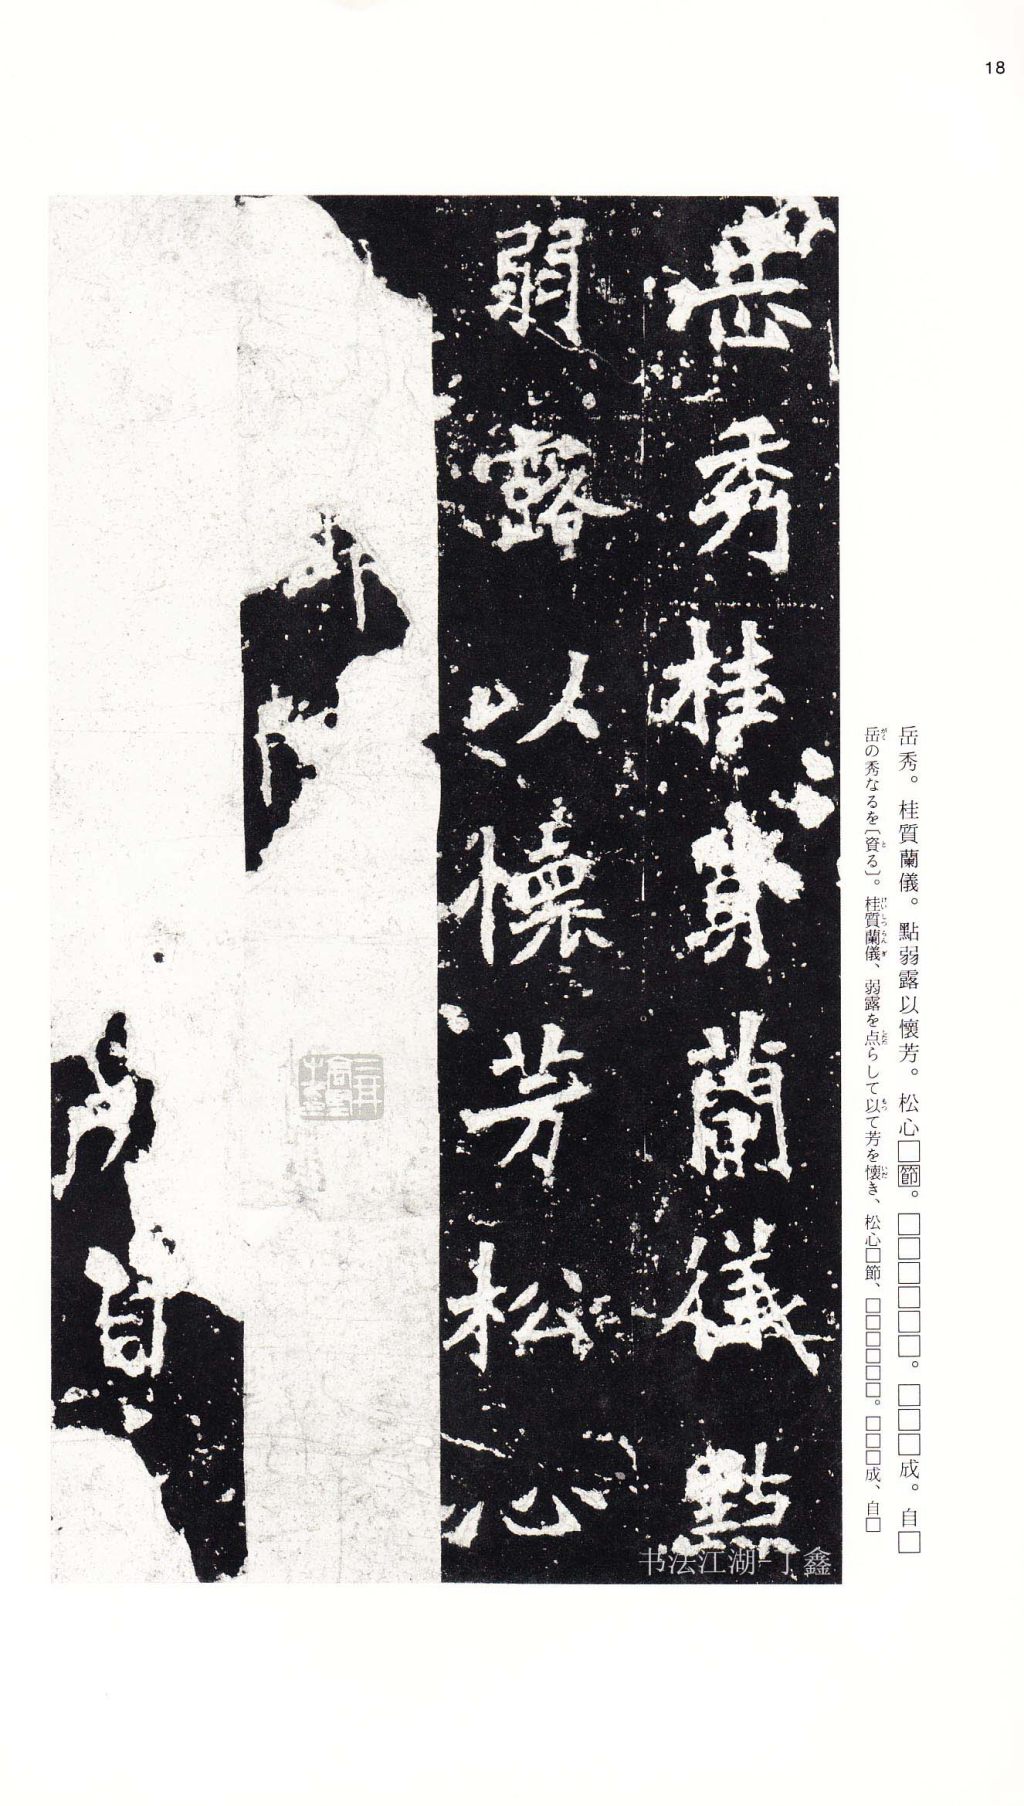 18
岳秀桂質蘭儀點
弱露以懷芳松心
節
成自
岳秀。桂質蘭儀。點弱露以懷芳。松心□節。□□□□□□。□□□成。自□
岳の秀なるを〔資る〕。桂質蘭儀、弱露を点らして以て芳を懐き、松心□節、□□□□□□。□□□成、自□
书法江湖-丁鑫